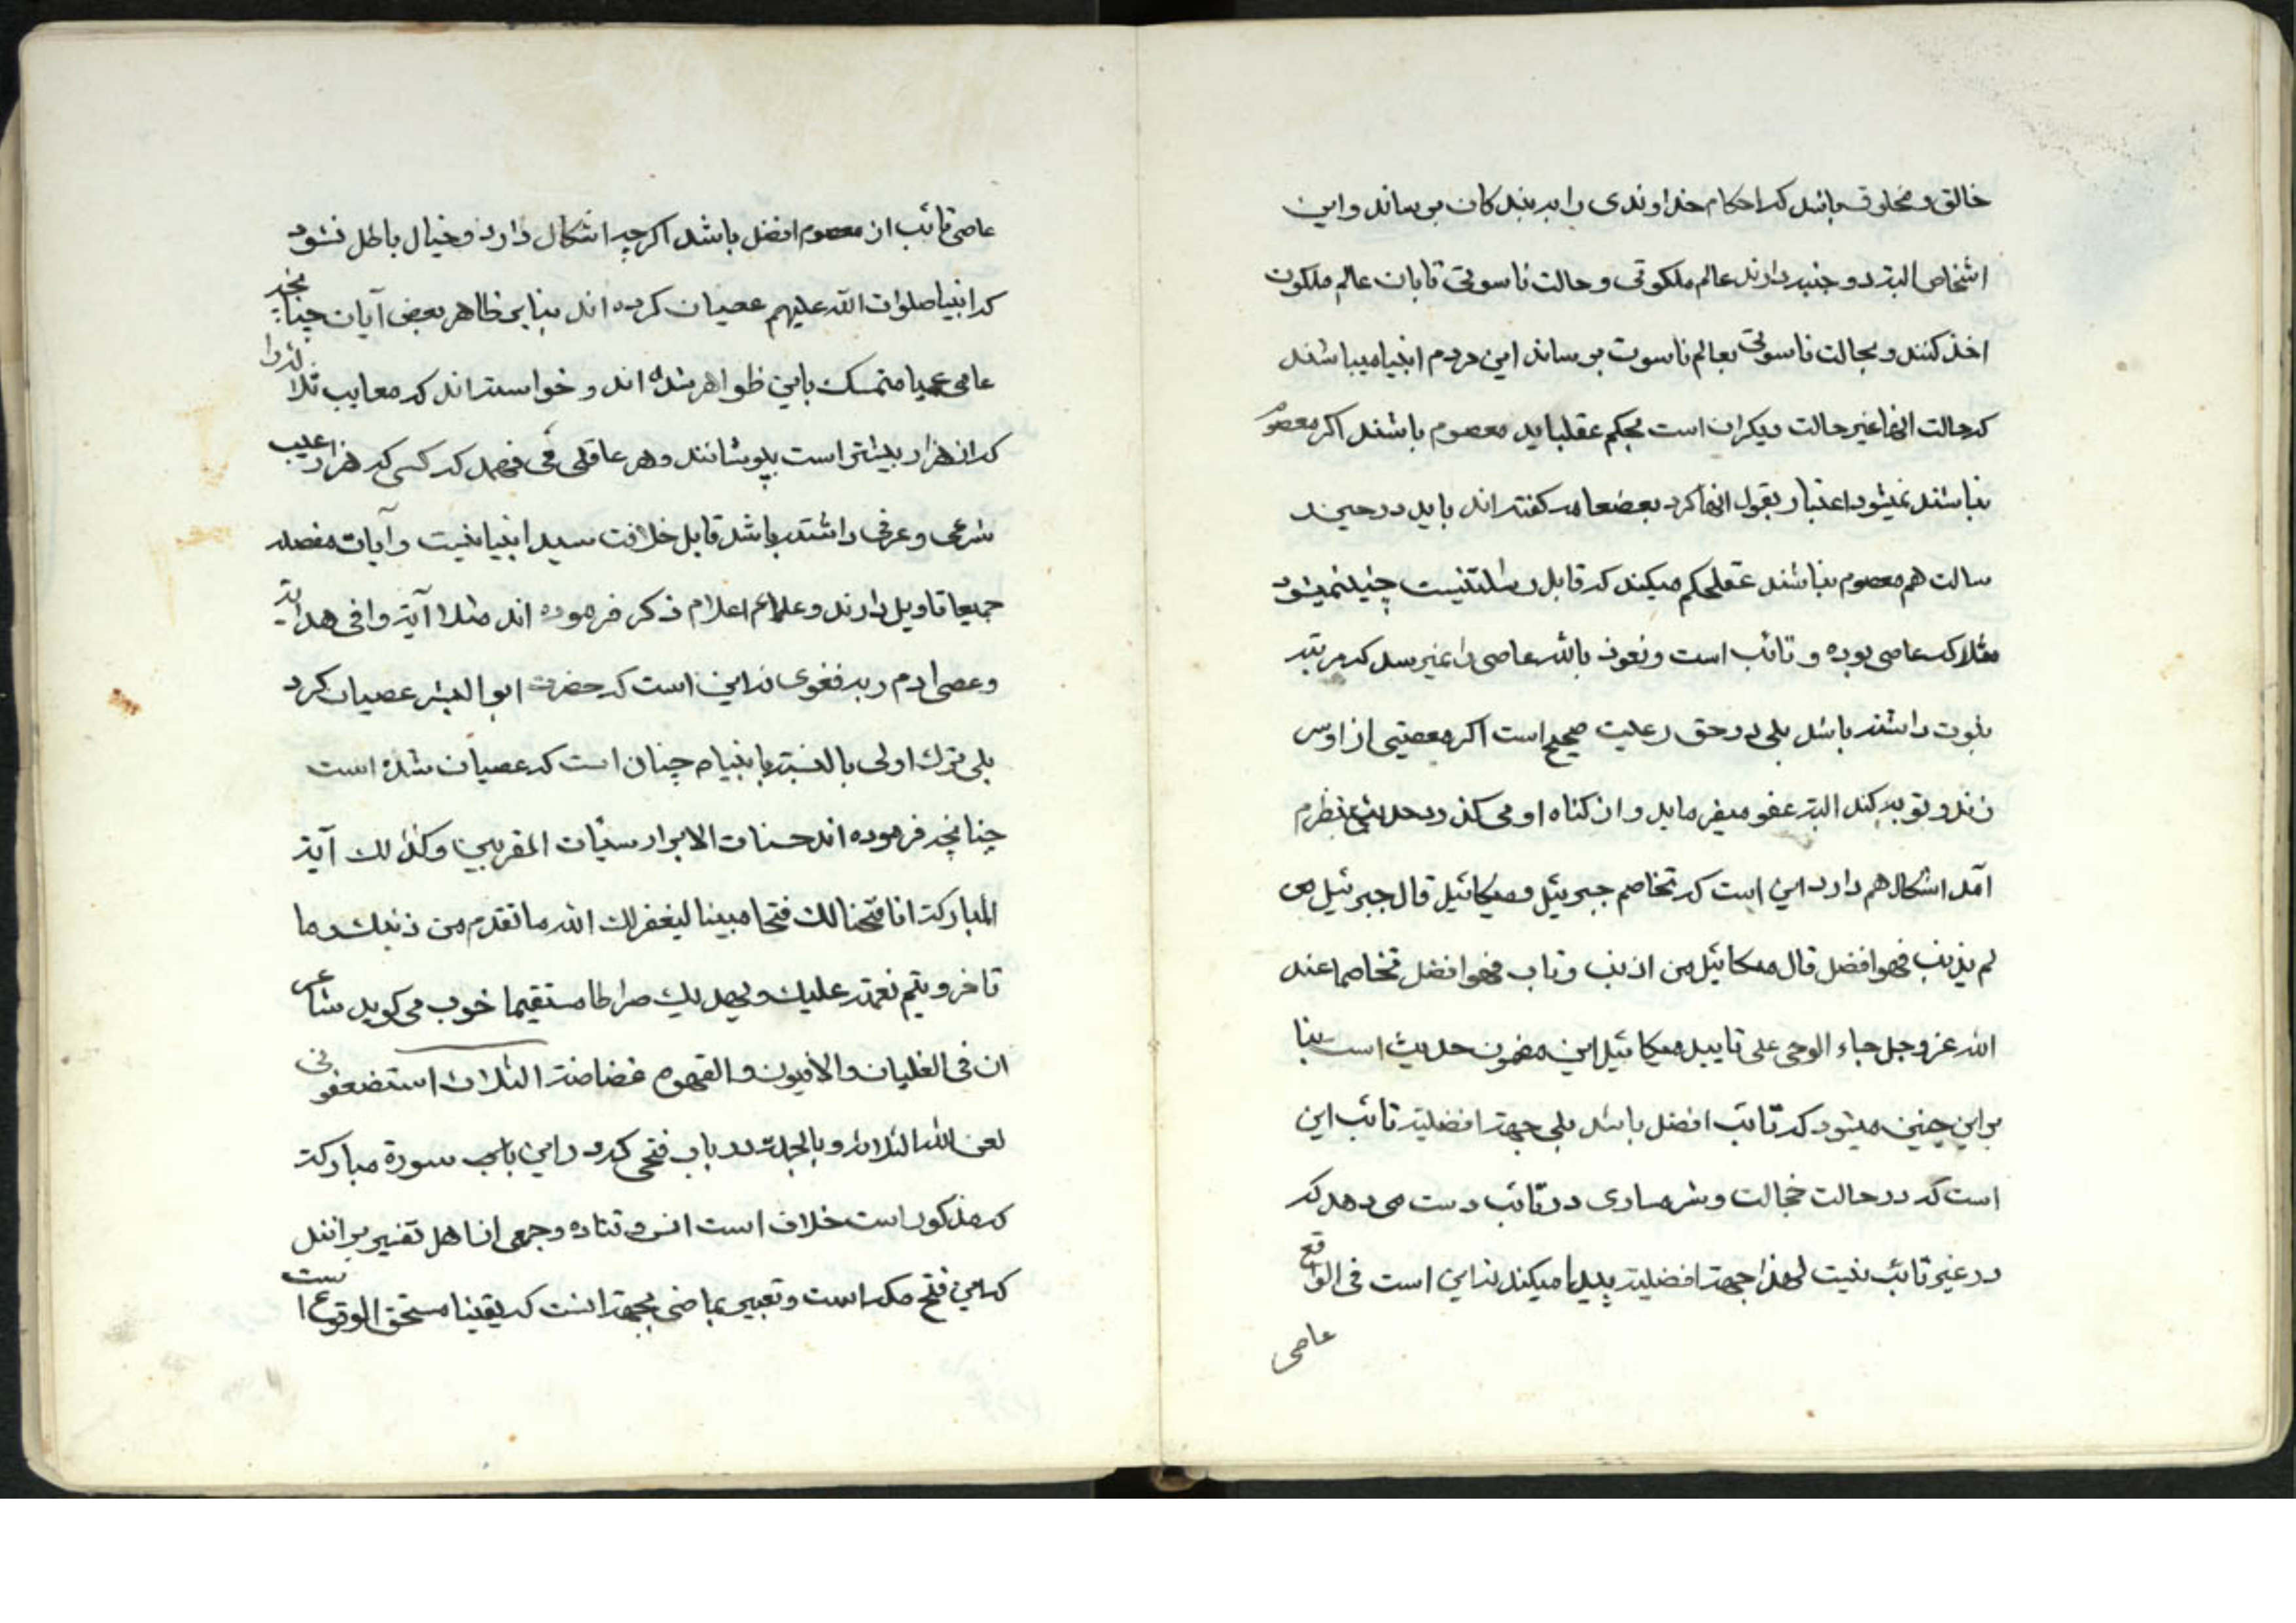 خالق و مخلوق باشد که احکام خداوندی را به بندکان برساند و این
اشخاص البته دو جنبه دارند عالم ملکوتی و حالت ناسوتی تا بان عالم ملکوت
اخذ کنند و بحالت ناسوتی بعالم ناسوت برساند این مردم انبیا میباشند
که حالت انها غیر حالت دیکران است بحکم عقل باید معصوم باشند اکر معصوم
نباشند نمیشود اعتبار بقول انها کرد بعض عامه کفته اند باید در حین
رسالت هم معصوم نباشند عقل حکم میکند که قابل رسالت نیست چنین نمیشود
مثلا که عاصی بوده و تائب است و نعوذ بالله عاصی را نمیرسد که مرتبه
نبوت داشته باشد بلی در حق رعیت صحیح است اکر معصیتی از او سر
زند و توبه کند البته عفو میفرماید و از کناه او می کذرد حدیثی بنظرم
آمد اشکال هم دارد این است که تخاصم جبرئیل و میکائیل قال جبرئیل من
لم یذنب فهو افضل قال میکائیل من اذنب و تاب فهو افضل تخاصما عند
الله عز و جل جاء الوحی علی تایید میکائیل این مضمون حدیث است بنا
بر این چنین میشود که تائب افضل باشد بلی جهة افضلیة تائب این
است که در حالت خجالت و شرمساری در تائب دست می دهد که
در غیر تائب نیست لهذا جهة افضلیة پیدا میکند نه این است فی الواقع
عاصی
عاصی تائب از معصوم افضل باشد اکر چه اشکال دارد و خیال باطل نشود
که انبیا صلوات الله علیهم عصیان کرده اند بنا بر ظاهر بعض آیات چنانچه
عامی عمیا متمسک باین ظواهر شده اند و خواسته اند که معایب ثلاثه را
که از هزار بیشتر است بپوشانند و هر عاقلی می فهمد که کسی که هزار عیب
شرعی و عرفی داشته باشد قابل خلافت سید انبیا نیست و آیات مفصله
جمیعا تاویل دارند و علمائم اعلام ذکر فرموده اند مثلا آیة وافی هدایة
و عصی ادم ربه فغوی نه این است که حضرت ابو البشر عصیان کرد
بلی ترك اولی بالنسبة بانبیاء چنان است که عصیان شده است
چنانچه فرموده اند حسنات الابرار سیئات المقربین و کذلك آیة
المبارکة انا فتحنا لك فتحا مبینا لیغفر لك الله ما تقدم من ذنبك و ما
تاخر و یتم نعمته علیك و یهدیك صراطا مستقیما خوب می کوید شاعر
ان فی الغلیان و الافیون و القهوه غضاضة الثلاث استضعفونی
لعن الله الثلاثه و بالجملة در باب فتحی که در این باب سورة مبارکة
که مذکور است خلاف است انس و قتاده و جمعی از اهل تفسیر برانند
که این فتح مکه است و تعبیر بماضی بجهة انست که یقینا مستحق الوقوع است